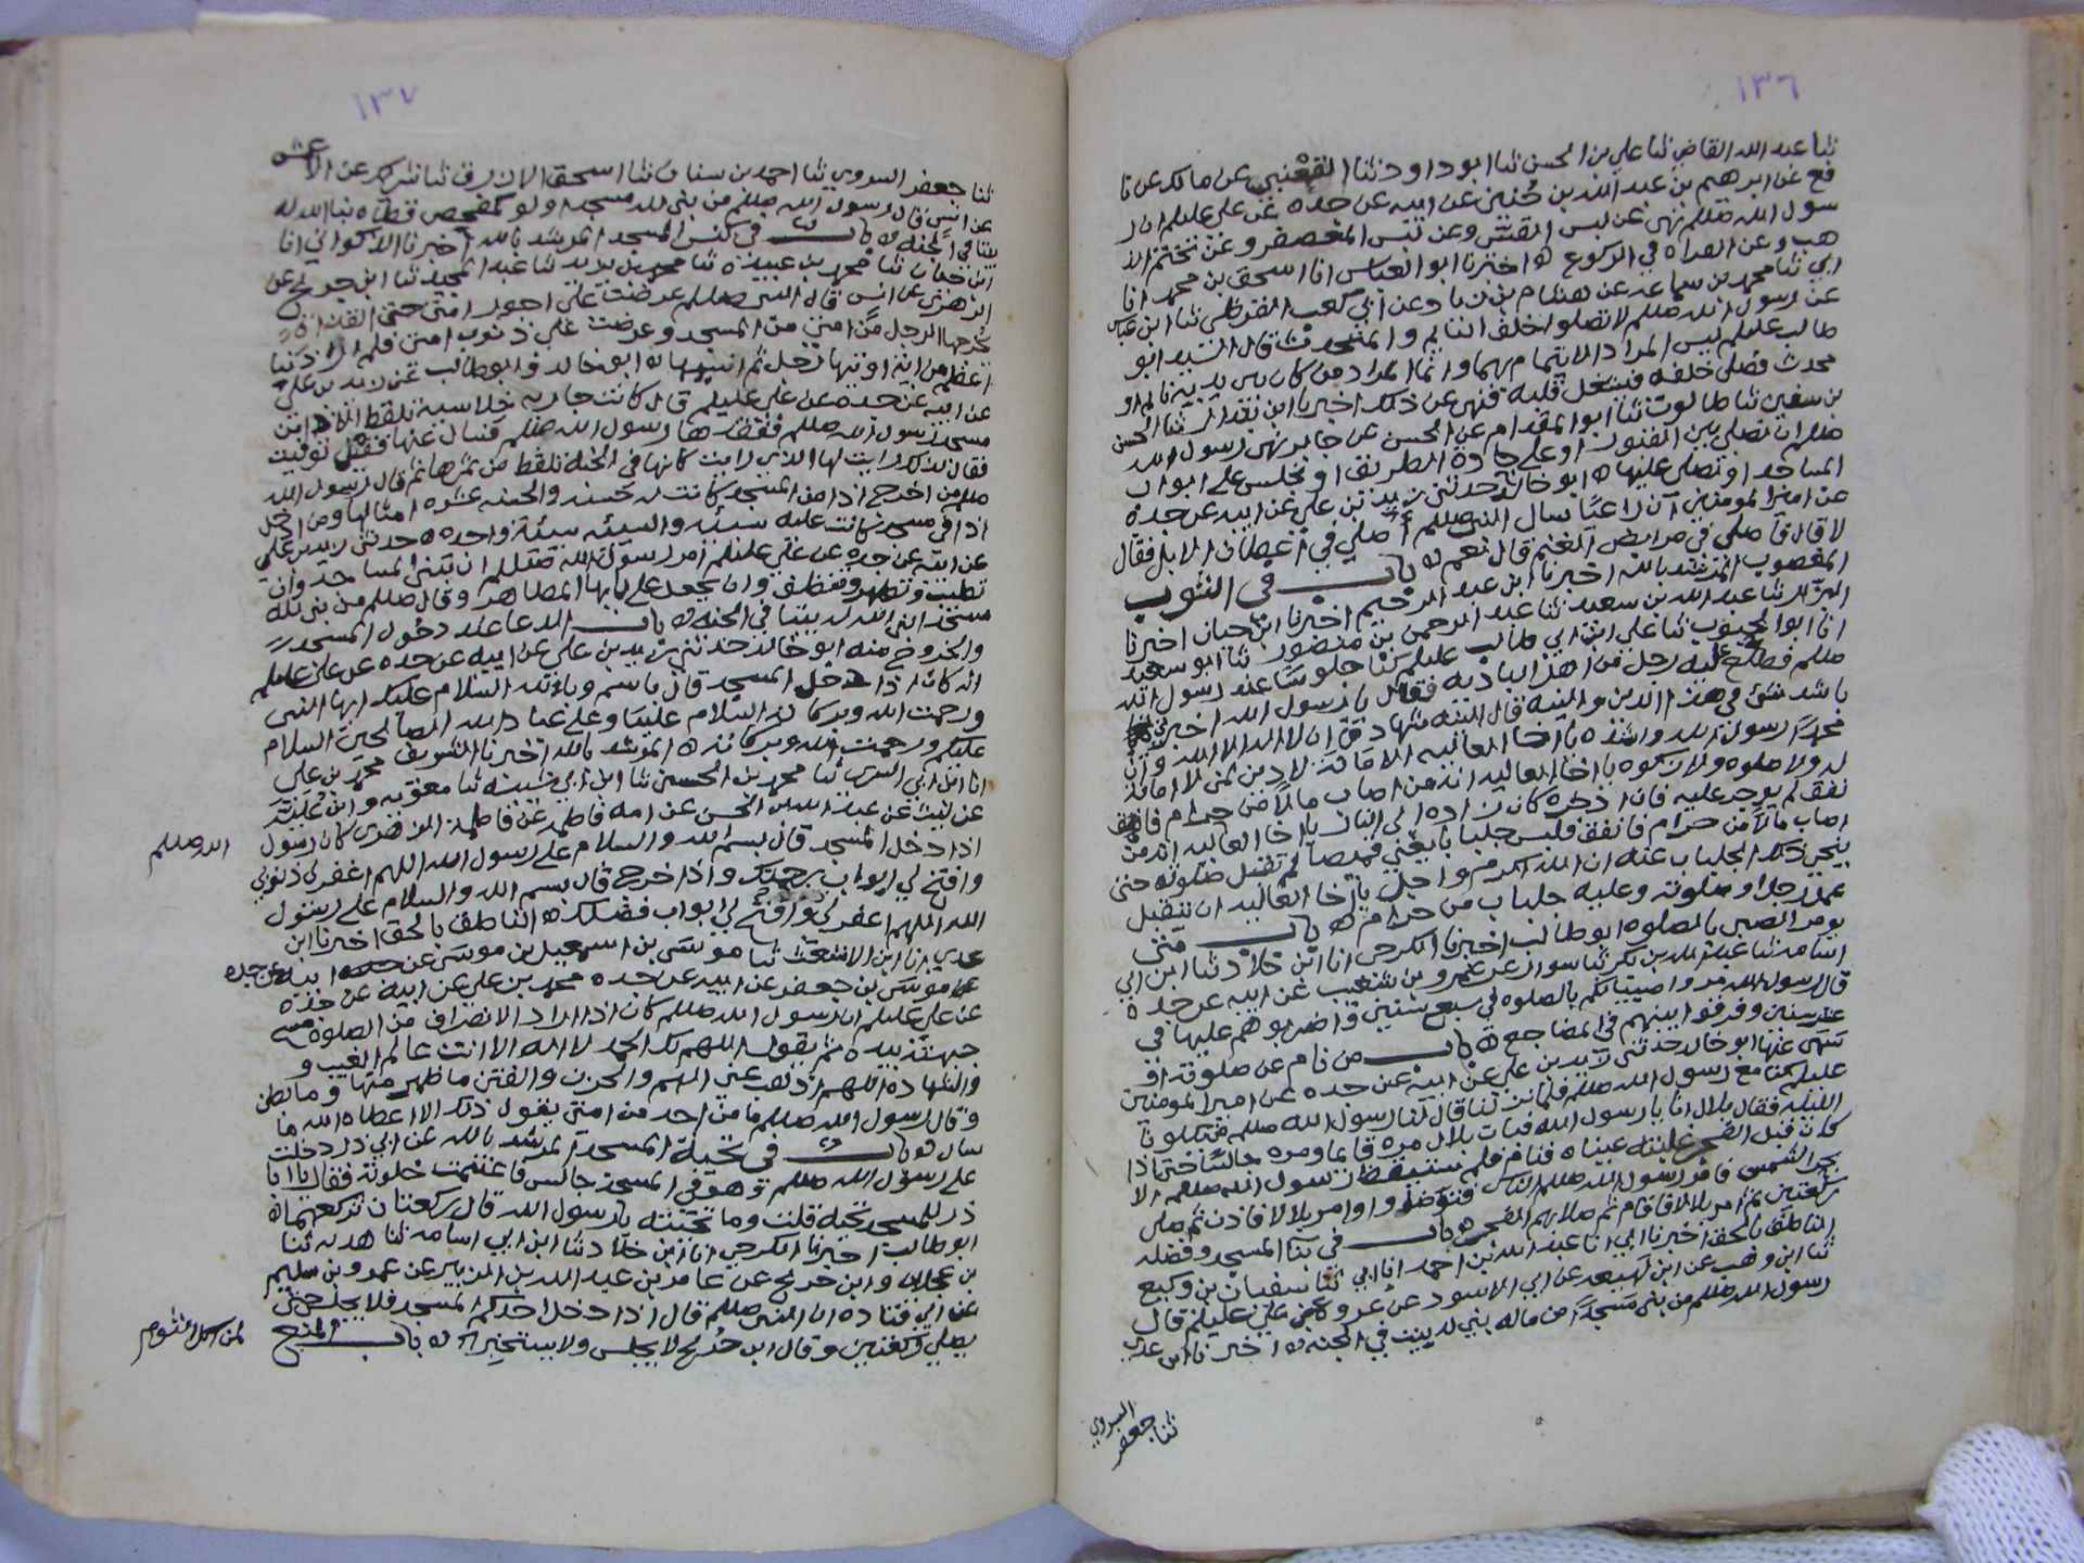 ١٣٦
ثنا عبد الله القاضي ثنا علي بن الحسن ثنا ابو داود ثنا القعنبي عن مالك عن نا
فع عن ابرهيم بن عبد الله بن حنين عن ابيه عن جده عن علي عليلم ان ر
سول الله صللم نهى عن لبس القسي وعن لبس المعصفر وعن تختم الذ
هب وعن القراه في الركوع ه اخبرنا ابو العباس انا اسحق بن محمد انا
ابي ثنا محمد بن سماعه عن هشام بن زياد عن ابي كعب القرظي ثنا ابن عباس
عن رسول الله صللم لا تصلوا خلف النايم والمتحدث قال السيد ابو
طالب عليلم ليس المراد الايتمام بهما وانما المراد من كان بين يديه نايم او
محدث فصلى خلفه فيشغل قلبه فنهى عن ذلك اخبرنا ابن بندار ثنا الحسن
بن سفين ثنا طالوت ثنا ابو المقدام عن الحسن عن جابر نهى رسول الله
صللم ان نصلي بين القبور او على جادة الطريق او نجلس على ابواب
المساجد او نصلي عليها ه ابو خالد حدثني زيد بن علي عن ابيه عن جده
عن امير المومنين ان راعيا سال النبي صللم اصلي في اعطان الابل فقال
لا قال فاصلي في مرابض الغنم قال نعم ه باب في الثوب
المغصوب المرشد بالله اخبرنا ابن عبد الرحيم اخبرنا ابن حيان اخبرنا
البزار ثنا عبد الله بن سعيد ثنا عبد الرحمن بن منصور ثنا ابو سعيد
انا ابو الجنوب ثنا علي ابن ابي طالب عليلم كنا جلوسا عند رسول الله
صللم فطلع عليه رجل من اهل الباديه فقال يا رسول الله اخبرني
باشد شيء في هذا الدين والينه قال الينه شهادة ان لا اله الا الله وان
محمدا رسول الله واشده يا اخا العاليه الامانة لا دين لمن لا امانة
له ولا صلوه ولا زكوه يا اخا العاليه انه من اصاب مالا من حرام فانفق
نفق لم يوجر عليه فان اذخره كان زاده الى النار يا اخا العاليه انه من
اصاب مالا من حرام فانفق فلبس جلبابا يعني قميصا لم تقبل صلوته حتى
ينحي ذلك الجلباب عنه ان الله اكرم واجل يا اخا العاليه ان يتقبل
عمل رجل او صلوته وعليه جلباب من حرام ه باب متى
يومر الصبي بالصلوه ابو طالب اخبرنا الكرجي انا ابن خلاد ثنا ابن ابي
اسامه ثنا عبد الله بن بكر ثنا سوار عن عمرو بن شعيب عن ابيه عن جده
قال رسول الله مروا صبيانكم بالصلوه في سبع سنين واضربوهم عليها في
عشر سنين وفرقوا بينهم في المضاجع ه باب من نام عن صلوته او
سهى عنها ابو خالد حدثني زيد بن علي عن ابيه عن جده عن امير المومنين
عليلم كنا مع رسول الله صللم فلما نزلنا قال لنا رسول الله صللم من يكلونا
الليله فقال بلال انا يا رسول الله فبات بلال مره قايما ومره جالسا حتى اذا
كان قبل الفجر غلبته عيناه فنام فلم يستيقظ رسول الله صللم الا
بحر الشمس فامر رسول الله صللم الناس فتوضوا وامر بلالا فاذن ثم صلى
ركعتين ثم امر بلالا فاقام ثم صلا بهم الفجر ه باب في بنا المسجد وفضله
الناطق بالحق اخبرنا ابي انا عبد الله بن احمد انا ابي ثنا سفيان بن وكيع
ثنا ابن وهب عن ابن لهيعه عن ابي الاسود عن عروه عن علي عليلم قال
رسول الله صللم من بنى مسجدا من ماله بني له بيت في الجنه ه اخبرنا ابن عدي
ثنا جعفر السروي
١٣٧
ثنا جعفر السروي ثنا احمد بن سنان ثنا اسحق الازرق ثنا شريك عن الاعمش
عن انس قال رسول الله صللم من بنى لله مسجدا ولو كمفحص قطاه بنا الله له
بيتا في الجنه ه باب في كنس المسجد المرشد بالله اخبرنا الاكواني انا
ابن حيان ثنا محمد بن عبيده ثنا محمد بن يزيد ثنا عبد المجيد ثنا ابن جريج عن
الزهري عن انس قال النبي صللم عرضت علي اجور امتي حتى القذاة
يخرجها الرجل من امتي من المسجد وعرضت علي ذنوب امتي فلم ار ذنبا
اعظم من ايه اوتيها رجل ثم انسيها ه ابو خالد وابو طالب عن زيد بن علي
عن ابيه عن جده عن علي عليلم قال كانت جاريه خلاسيه تلقط الاذا من
مسجد رسول الله صللم ففقدها رسول الله صللم فسال عنها فقيل توفيت
فقال لذلك رايت لها الذي رايت كانها في الجنة تلقط من ثمرها ثم قال رسول الله
صللم من اخرج اذا من المسجد كانت له حسنه والحسنه عشره امثالها ومن ادخل
اذا في مسجد كانت عليه سيئه والسيئه سيئة واحده ه حدثني زيد بن علي
عن ابيه عن جده عن علي عليلم امر رسول الله صللم ان تبنى المساجد وان
تطيب وتطهر وتنظف وان يجعل على بابها المطاهر وقال صللم من بنى لله
مسجدا بنى الله له بيتا في الجنه ه باب الدعا عند دخول المسجد
والخروج منه ابو خالد حدثني زيد بن علي عن ابيه عن جده عن علي عليلم
انه كان اذا دخل المسجد قال باسم وبالله السلام عليك ايها النبي
ورحمت الله وبركاته السلام علينا وعلى عباد الله الصالحين السلام
عليكم ورحمت الله وبركاته ه المرشد بالله اخبرنا الشريف محمد بن علي
انا ابن ابي السري ثنا محمد بن الحسين ثنا ابن ابي شيبه ثنا معويه وابن عليه
عن ليث عن عبد الله بن الحسن عن امه فاطمه عن فاطمة الزهرى كان رسول
الله صللم
اذا دخل المسجد قال بسم الله والسلام على رسول الله اللهم اغفر لي ذنوبي
وافتح لي ابواب رحمتك واذا خرج قال بسم الله والسلام على رسول
الله اللهم اغفر لي ذنوبي وافتح لي ابواب فضلك ه الناطق بالحق اخبرنا ابن
عدي انا ابن الاشعث ثنا موسى بن اسمعيل بن موسى عن ابيه عن جده
موسى بن جعفر عن ابيه عن جده محمد بن علي عن ابيه عن جده
عن علي عليلم ان رسول الله صللم كان اذا اراد الانصراف من الصلوة مسح
جبهته بيده ثم يقول اللهم لك الحمد لا اله الا انت عالم الغيب و
والشهاده اللهم اذهب عني الهم والحزن والفتن ما ظهر منها وما بطن
وقال رسول الله صللم ما من احد من امتي يقول ذلك الا اعطاه الله ما
سال ه باب في تحية المسجد المرشد بالله عن ابي ذر دخلت
على رسول الله صللم وهو في المسجد جالس فاغتنمت خلوته فقال يا ابا
ذر للمسجد تحيه قلت وما تحيته يا رسول الله قال ركعتان تركعهما ه
ابو طالب اخبرنا الكرجي انا ابن خلاد ثنا ابن ابي اسامه ثنا هدبه ثنا
بن عجلان وابن جريج عن عامر بن عبد الله بن الزبير عن عمرو بن سليم
عن ابي قتاده ان النبي صللم قال اذا دخل احدكم المسجد فلا يجلس حتى
يصلي ركعتين وقال ابن جريج لا يجلس ولا يستخبر ه باب المنع
لمن اكل الثوم